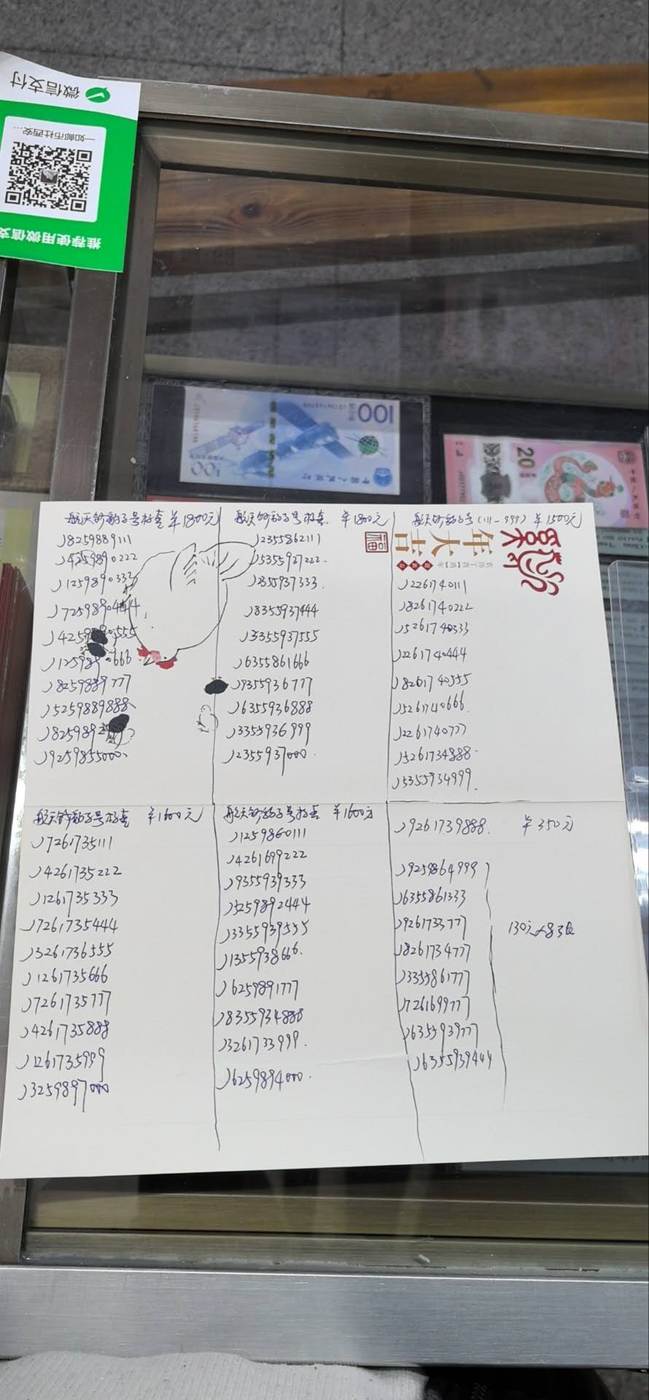 微信支付
一如邮币社西安...
推荐使用微信支
100
中国人民银行
100
20
中国人民银行
航天钞豹子号检查 ¥1800元
J18259889111
J14259890222
J11259890333
J17259890444
J18259889777
J15259889888
J19259855000
航天钞豹子号 ¥1800元
J12355862111
J15355927222
J12355937333
J18355937444
J13355937555
J16355861666
J19355936777
J16355936888
J13355936999
J12355937000
航天钞豹子号(111-999) ¥1500元
年大吉
福
J12261740111
J18261740222
J15261740333
J12261740444
J18261740555
J15261740666
J12261740777
J15261734888
J15355934999
航天钞豹子号 ¥1600元
J17261735111
J14261735222
J11261735333
J17261735444
J13261736555
J11261735666
J17261735777
J14261735888
J11261735999
J13259897000
航天钞豹子号 ¥1600元
J11259860111
J14261699222
J19355939333
J15259892444
J13355939555
J11355938666
J16259891777
J18355934888
J13261733999
J16259894000
J19261739888 ¥350元
J19259864999
J16355861333
J19261733777
J18261734777
J13355861777
J17261699777
J16355939777
J16355939444
130元